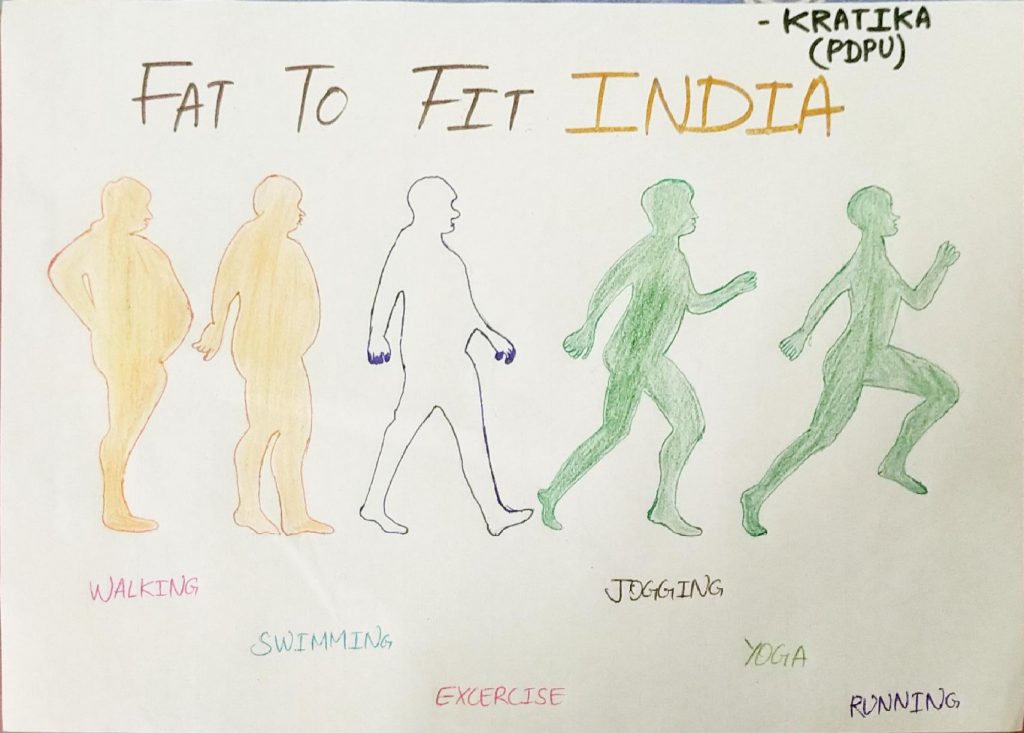 - KRATIKA
(PDPU)
FAT TO FIT INDIA
WALKING
JOGGING
SWIMMING
YOGA
EXCERCISE
RUNNING